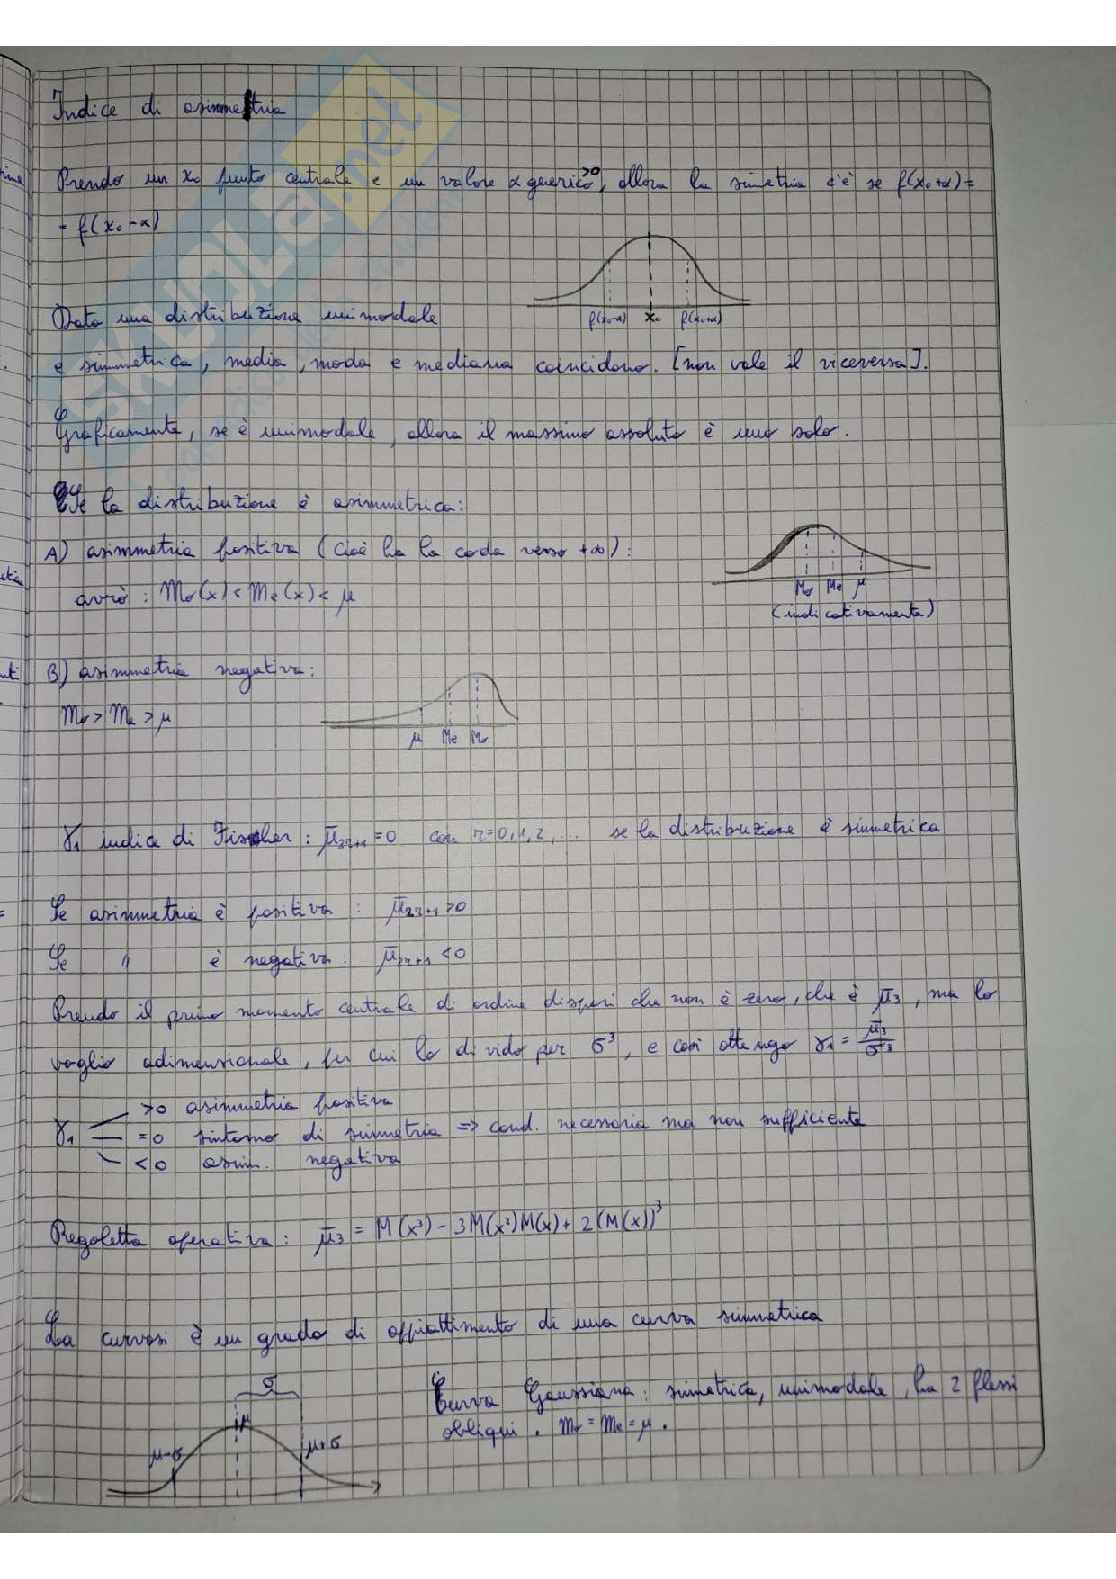 Indice di asimmetria
Prendo un x₀ punto centrale e un valore α generico >0, allora la simetria c'è se f(x₀+α)=
= f(x₀-α)
f(x₀-α) x₀ f(x₀+α)
Data una distribuzione unimodale
e simmetrica, media, moda e mediana coincidono. [non vale il viceversa].
Graficamente, se è unimodale, allora il massimo assoluto è uno solo.
Se la distribuzione è asimmetrica:
A) asimmetria positiva (cioè ha la coda verso +∞):
avrò: Mo(x) < Me(x) < μ
Mo Me μ
(indicativamente)
B) asimmetria negativa:
Mo > Me > μ
μ Me Mo
γ₁ indice di Fischer: μ̄₂ₙ₊₁ = 0 con n=0,1,2,... se la distribuzione è simmetrica
Se asimmetria è positiva: μ̄₂ₙ₊₁ >0
Se " è negativa: μ̄₂ₙ₊₁ <0
Prendo il primo momento centrale di ordine dispari che non è zero, che è μ̄₃, ma lo
voglio adimensionale, per cui lo divido per σ³, e così ottengo γ₁ = μ̄₃/σ³
>0 asimmetria positiva
γ₁ =0 sintomo di simmetria => cond. necessaria ma non sufficiente
<0 asim. negativa
Regoletta operativa: μ̄₃ = M(x³) - 3M(x²)M(x) + 2(M(x))³
La curtosi è un grado di appiattimento di una curva simmetrica
Curva Gaussiana: simetrica, unimodale, ha 2 flessi
obliqui. Mo = Me = μ.
σ
μ
μ-σ μ+σ